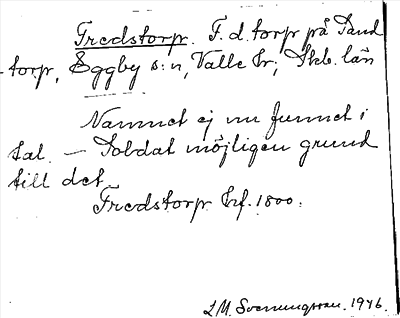 Fredstorp. F. d. torp på Sand
torp, Eggby s:n, Valle hr; Skb. län
Namnet ej nu funnet i
tal. — Soldat möjligen grund
till det
Fredstorp hrf. 1800.
L.M. Svenungsson. 1946.